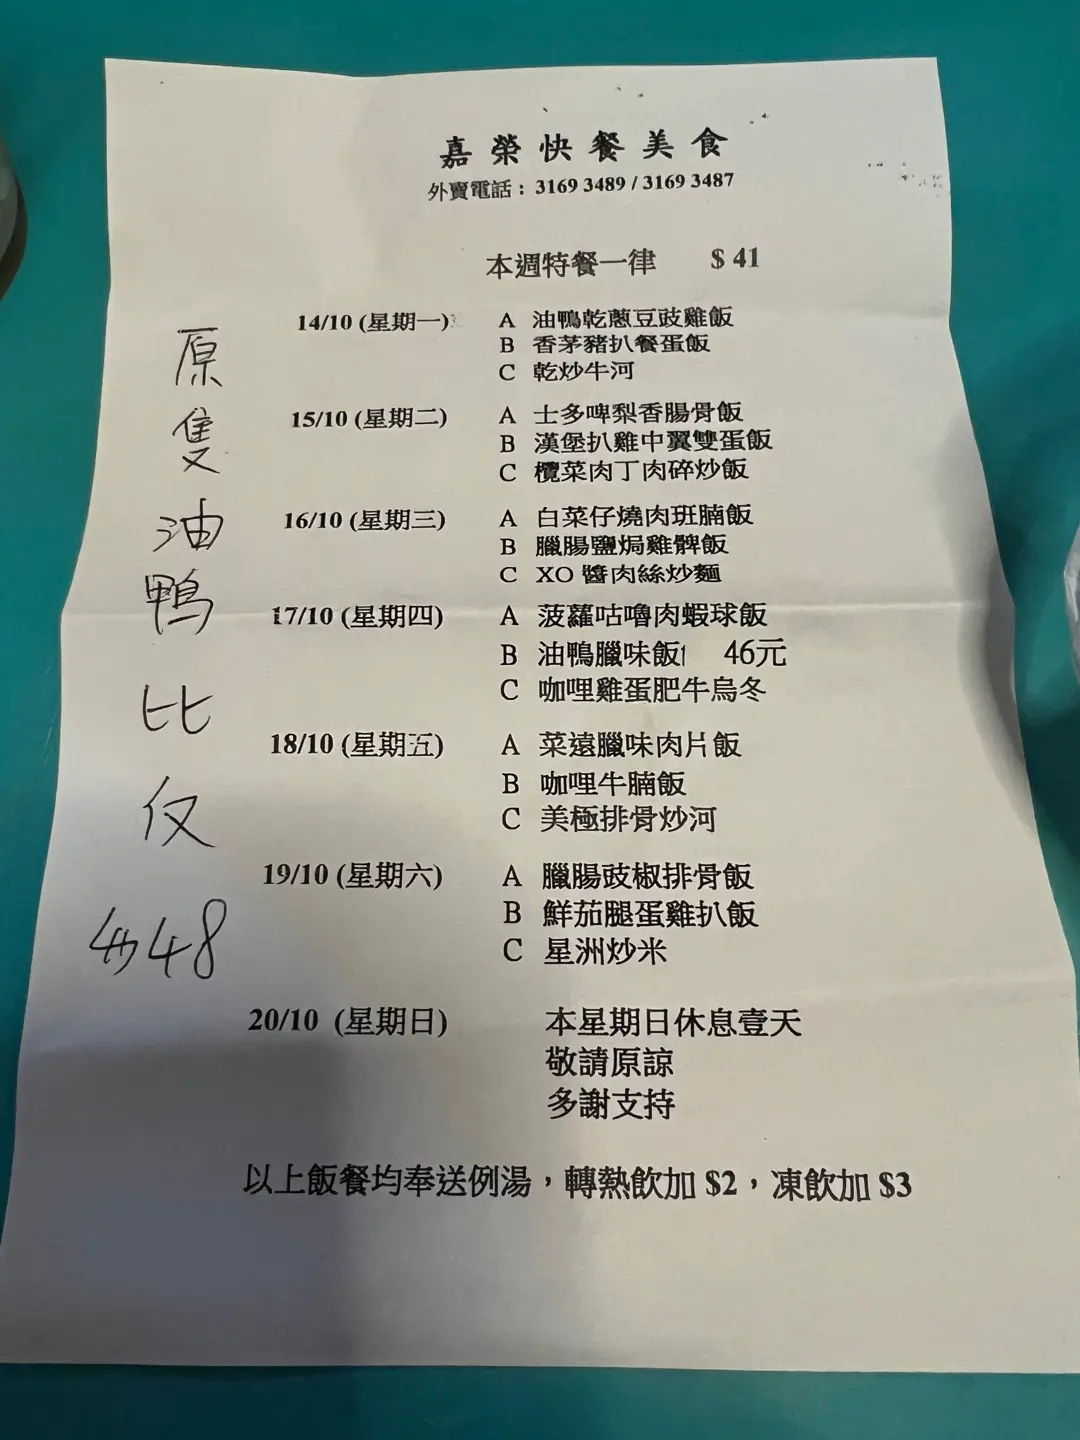 嘉榮快餐美食
外賣電話：3169 3489 / 3169 3487
本週特餐一律 $ 41
14/10 (星期一) A 油鴨乾蔥豆豉雞飯
B 香茅豬扒餐蛋飯
C 乾炒牛河
15/10 (星期二) A 士多啤梨香腸骨飯
B 漢堡扒雞中翼雙蛋飯
C 欖菜肉丁肉碎炒飯
16/10 (星期三) A 白菜仔燒肉班腩飯
B 臘腸鹽焗雞髀飯
C XO 醬肉絲炒麵
17/10 (星期四) A 菠蘿咕嚕肉蝦球飯
B 油鴨臘味飯 46元
C 咖哩雞蛋肥牛烏冬
18/10 (星期五) A 菜遠臘味肉片飯
B 咖哩牛腩飯
C 美極排骨炒河
19/10 (星期六) A 臘腸豉椒排骨飯
B 鮮茄腿蛋雞扒飯
C 星洲炒米
20/10 (星期日) 本星期日休息壹天
敬請原諒
多謝支持
以上飯餐均奉送例湯，轉熱飲加 $2，凍飲加 $3
原隻油鴨比
48